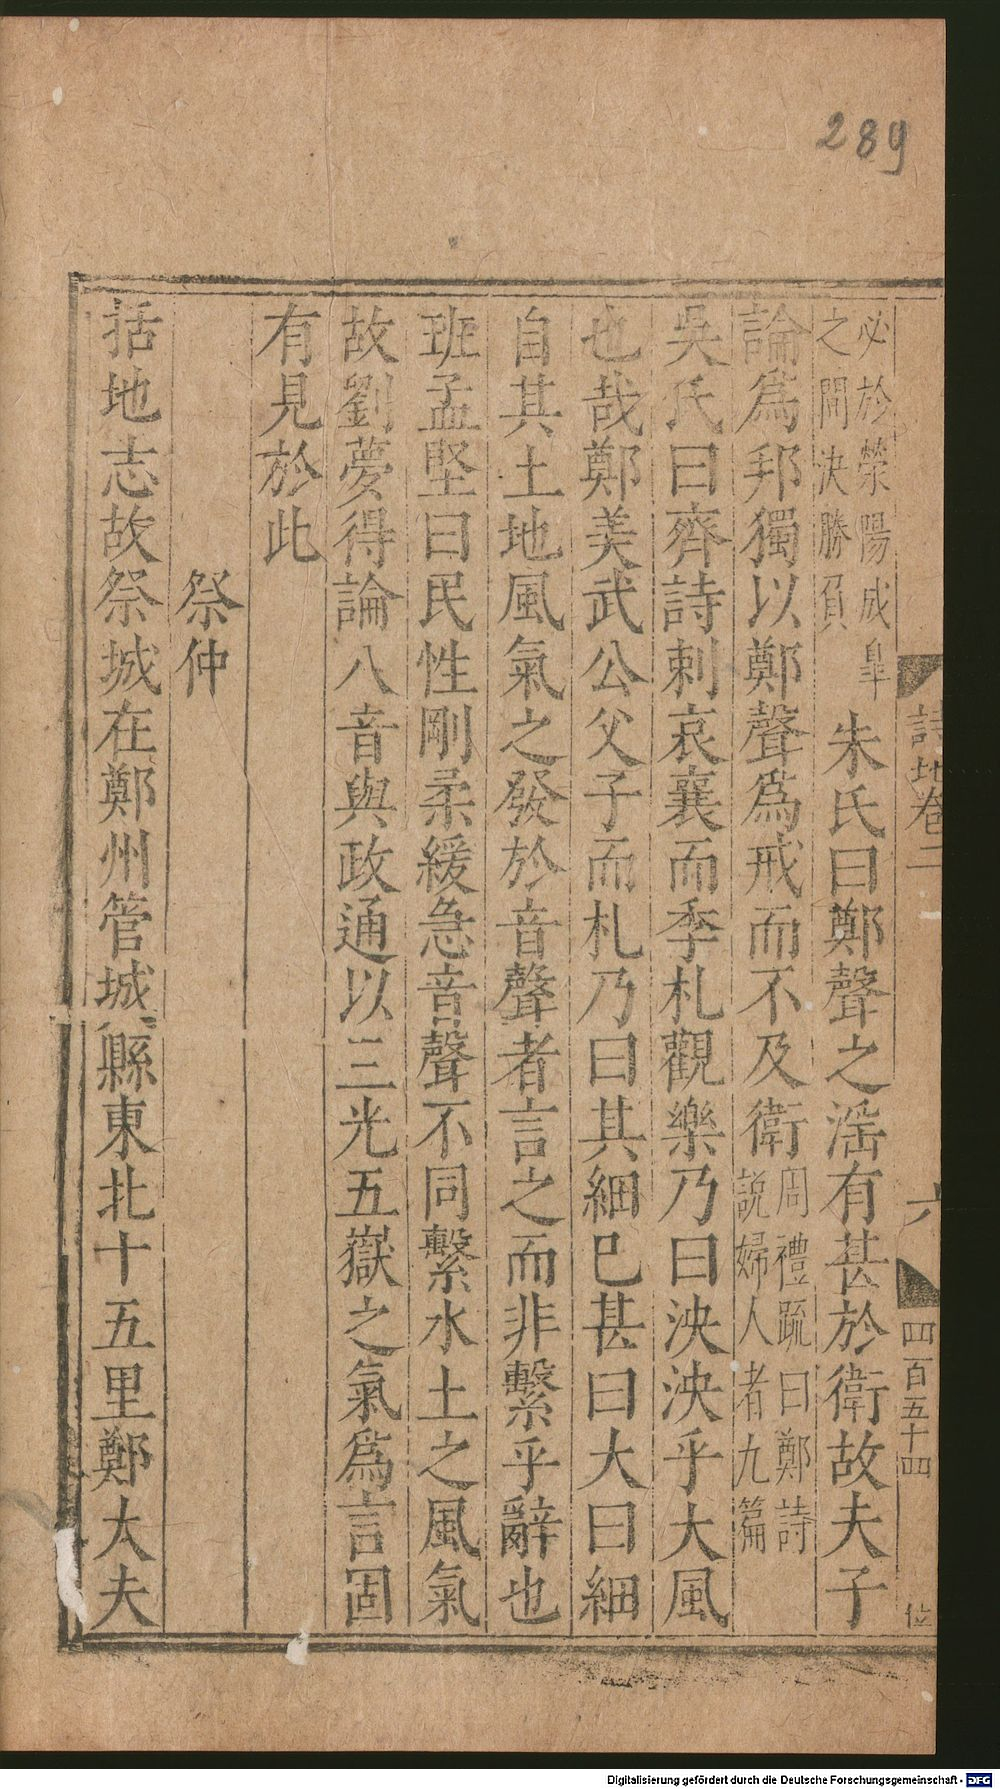 289
詩地卷二
六
四百五十四
位
必於滎陽成皐
之閒決勝負
朱氏曰鄭聲之滛有甚於衛故夫子
論爲邦獨以鄭聲爲戒而不及衛
周禮疏曰鄭詩
說婦人者九篇
吳氏曰齊詩刺哀襄而季札觀樂乃曰泱泱乎大風
也哉鄭美武公父子而札乃曰其細已甚曰大曰細
自其土地風氣之發於音聲者言之而非繫乎辭也
班孟堅曰民性剛柔緩急音聲不同繫水土之風氣
故劉夢得論八音與政通以三光五嶽之氣爲言固
有見於此
祭仲
括地志故祭城在鄭州管城縣東北十五里鄭大夫
Digitalisierung gefördert durch die Deutsche Forschungsgemeinschaft - DFG